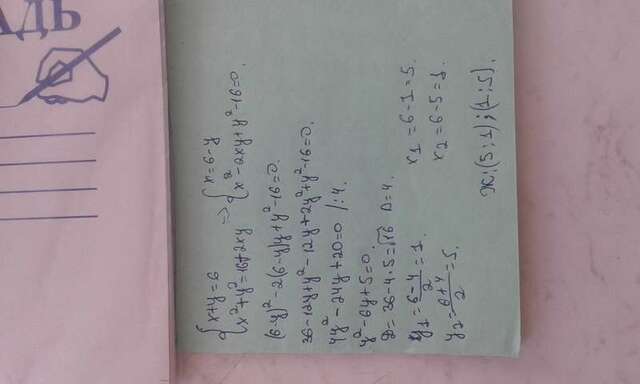 АДЬ
{x+y=6 → {x=6-y
x²+y²=16+2xy x²-2xy+y²-16=0.
(6-y)²-2(6-y)y+y²-16=0.
36-12y+y²-12y+2y²+y²-16=0.
4y²-24y+20=0 /:4.
y²-6y+5=0.
D=36-4·5=√16 D=4.
y₁=(6-4)/2=1. x₁=6-1=5.
y₂=(6+4)/2=5. x₂=6-5=1.
Ж:(5;1);(1;5).